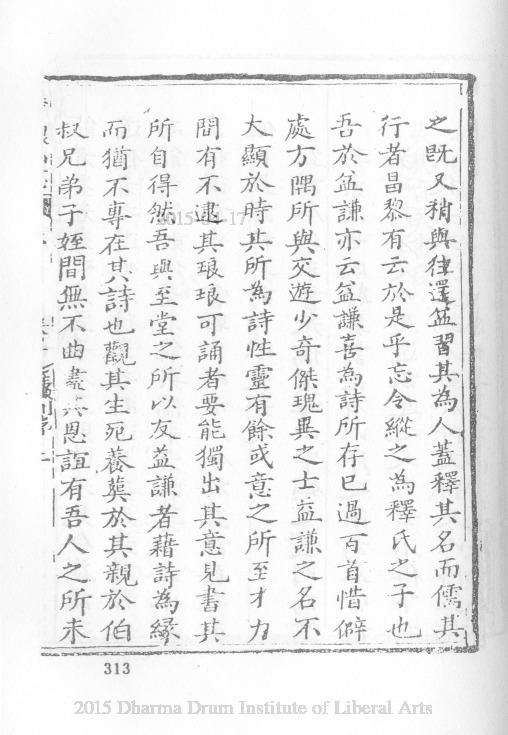 之既又稍與往還益習其為人蓋釋其名而儒其
行者昌黎有云於是乎忘令縱之為釋氏之子也
吾於益謙亦云益謙喜為詩所存已過百首惜僻
處方隅所與交遊少奇傑瑰異之士益謙之名不
大顯於時其所為詩性靈有餘或意之所至才力
間有不逮其琅琅可誦者要能獨出其意見書其
所自得然吾與至堂之所以友益謙者藉詩為緣
而猶不專在其詩也觀其生死養葬於其親於伯
叔兄弟子姪間無不曲盡其恩誼有吾人之所未
313
2015 Dharma Drum Institute of Liberal Arts